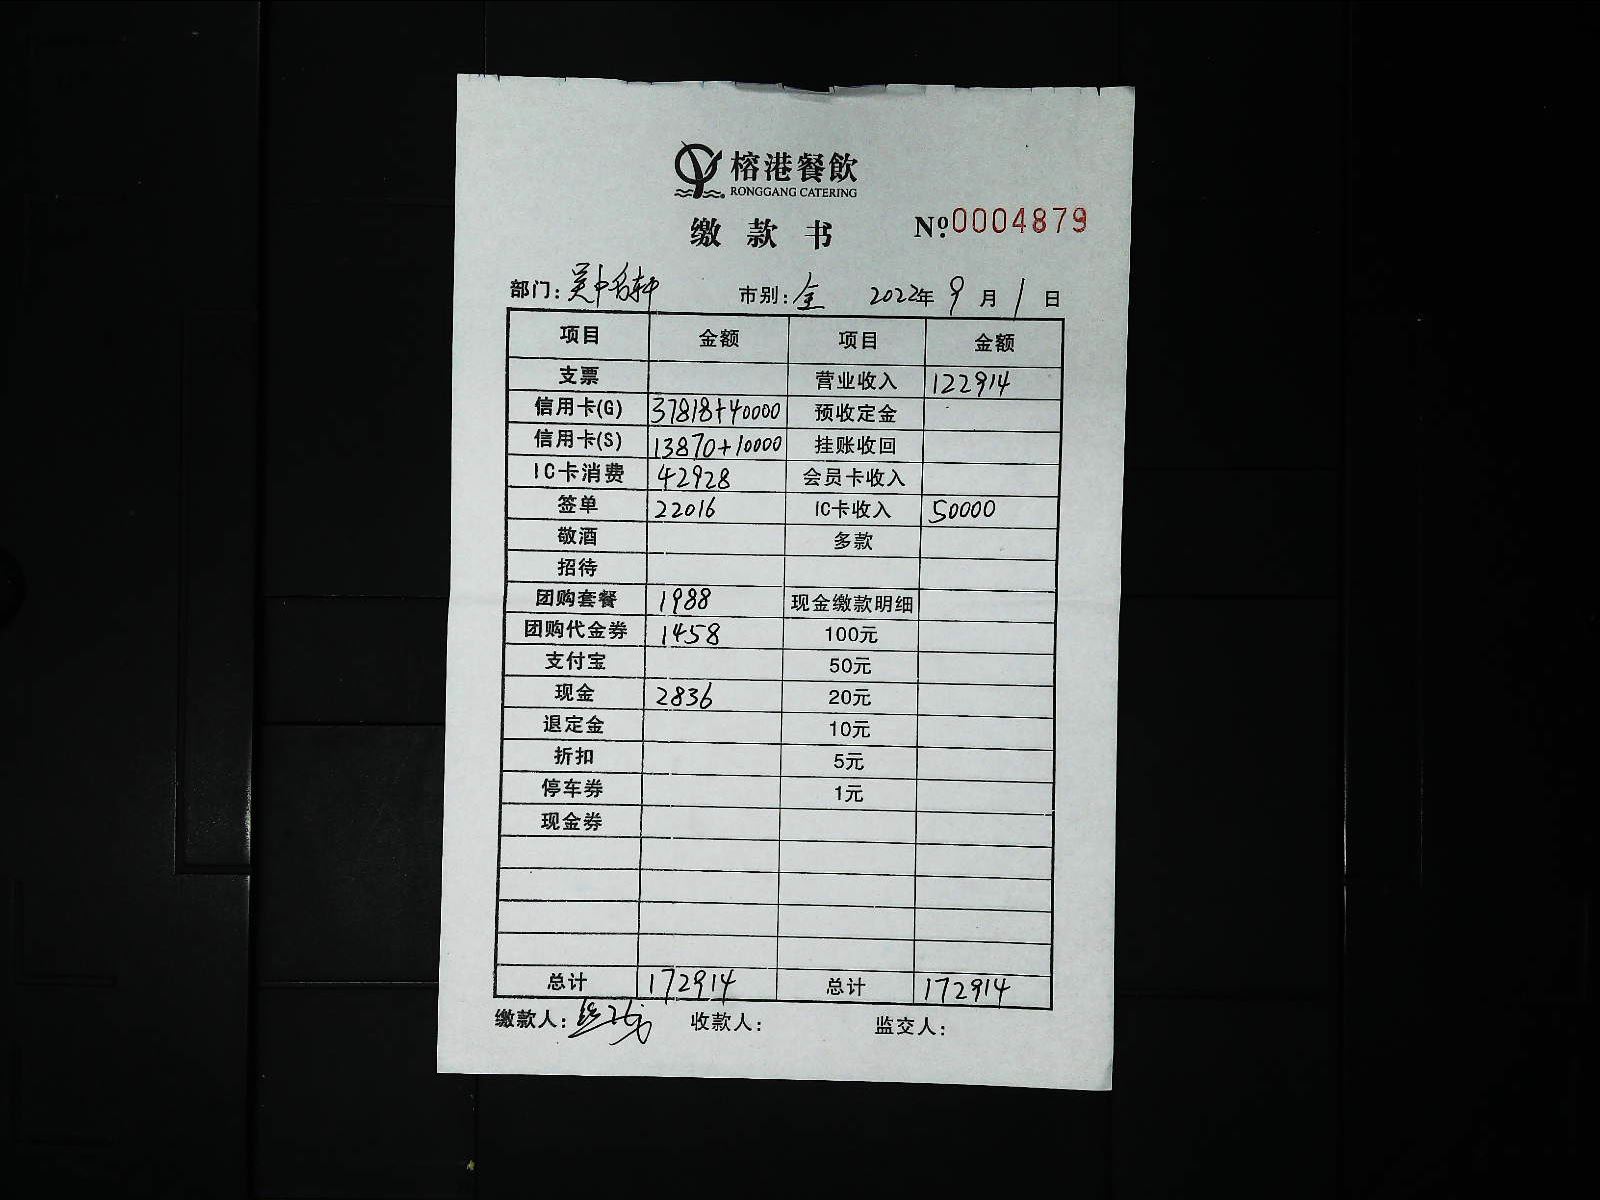 榕港餐飲
RONGGANG CATERING
缴款书 Nº:0004879
部门: 市别:全 2022年9月1日
项目 金额 项目 金额
支票 营业收入 122914
信用卡(G) 37818+40000 预收定金
信用卡(S) 13870+10000 挂账收回
IC卡消费 42928 会员卡收入
签单 22016 IC卡收入 50000
敬酒 多款
招待
团购套餐 1988 现金缴款明细
团购代金券 1458 100元
支付宝 50元
现金 2836 20元
退定金 10元
折扣 5元
停车券 1元
现金券
总计 172914 总计 172914
缴款人: 收款人: 监交人: